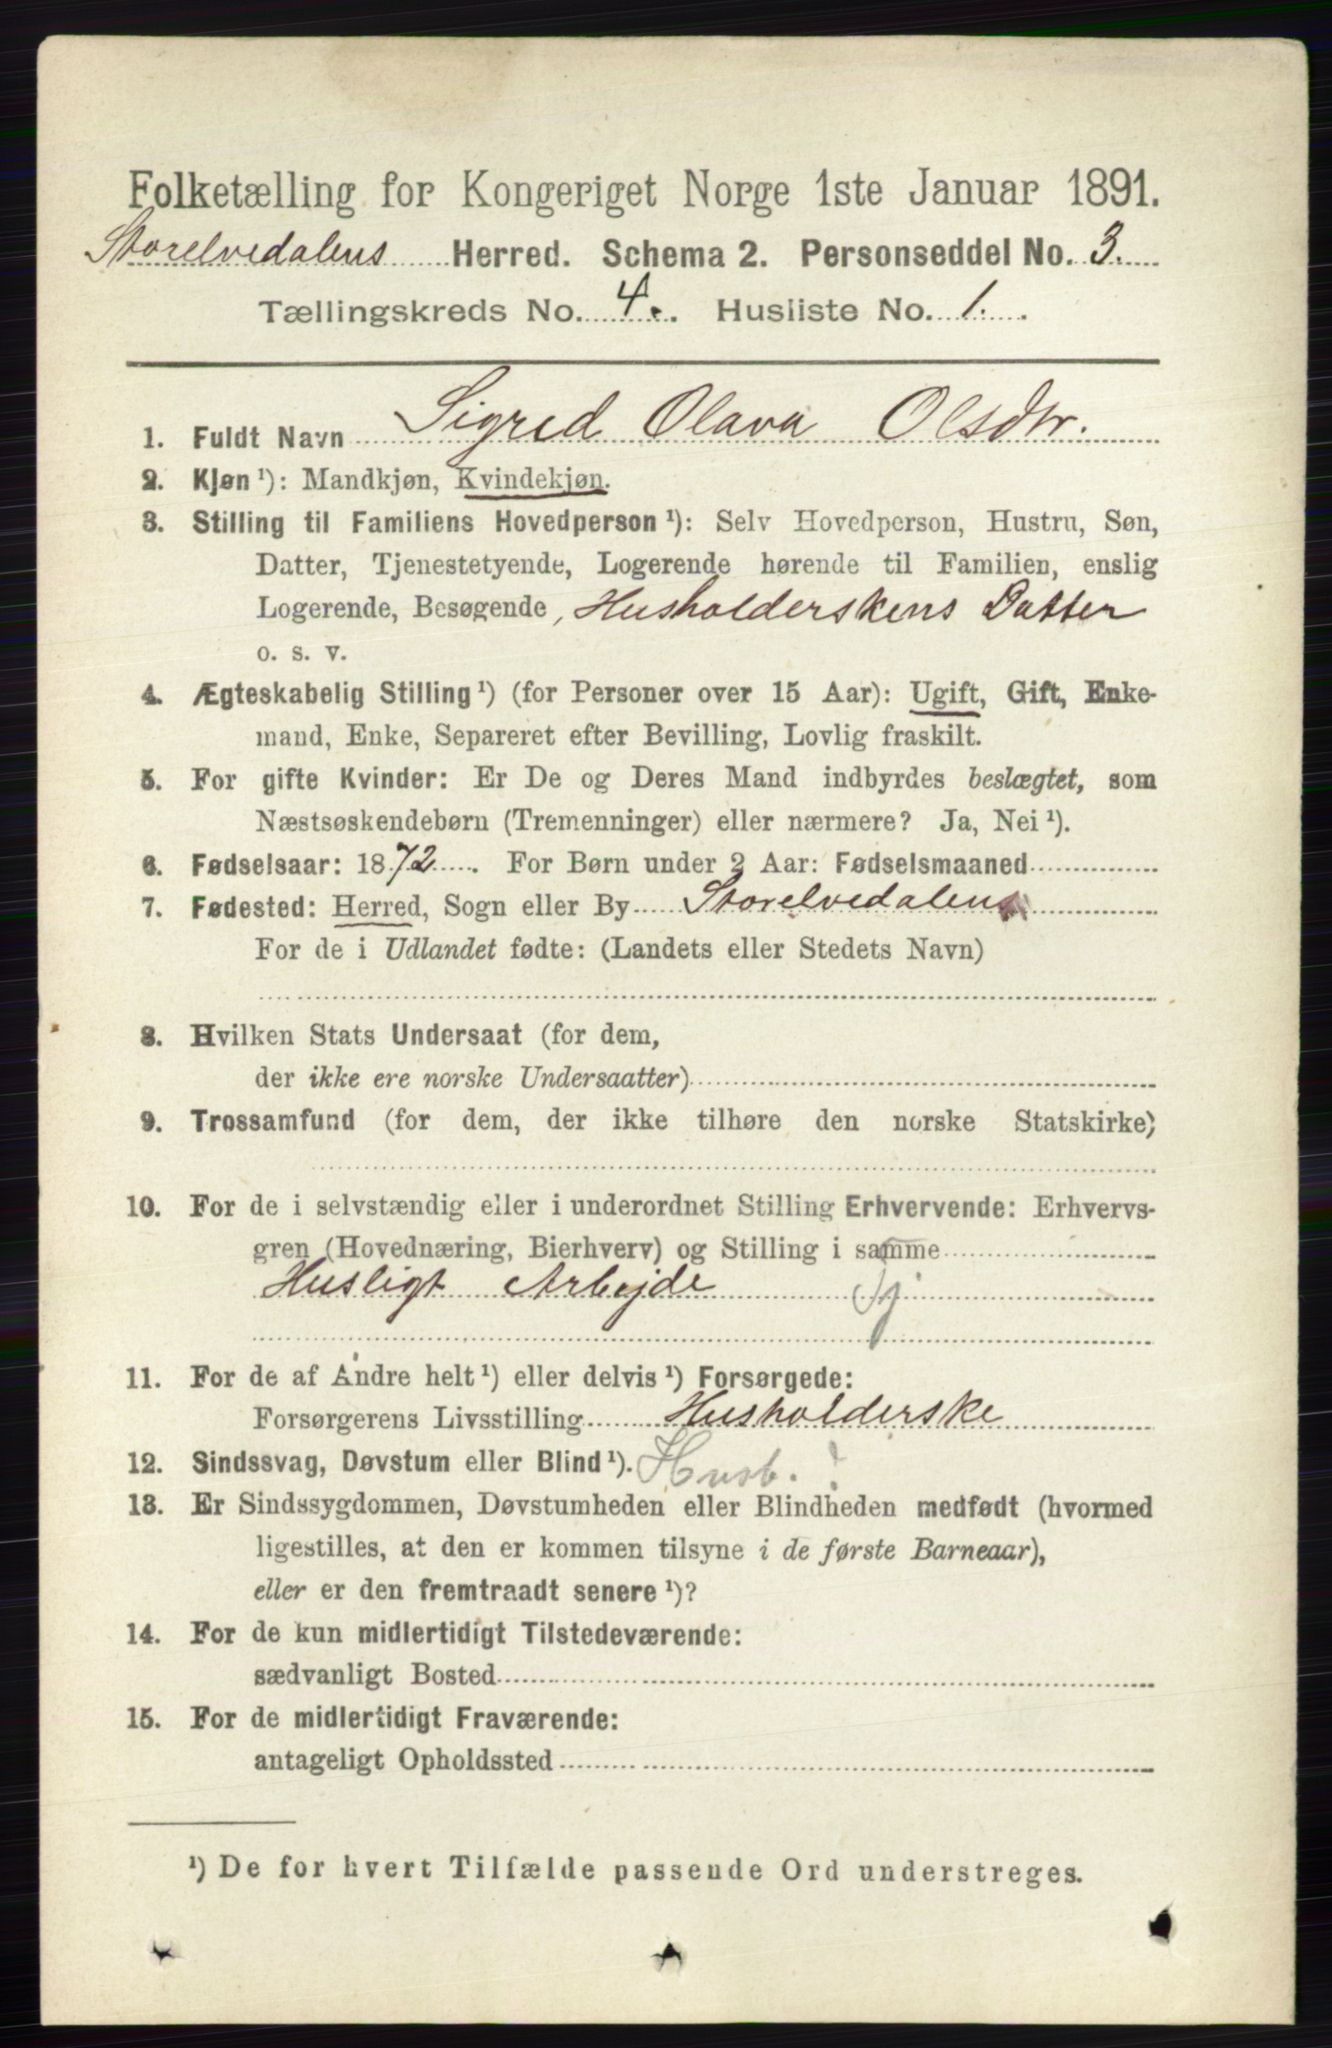 Folketælling for Kongeriget Norge 1ste Januar 1891.
Storelvedalens Herred. Schema 2. Personseddel No. 3.
Tællingskreds No. 4. Husliste No. 1.
1. Fuldt Navn Sigred Olava Olsdtr.
2. Kjøn ¹): Mandkjøn, Kvindekjøn.
3. Stilling til Familiens Hovedperson ¹): Selv Hovedperson, Hustru, Søn,
Datter, Tjenestetyende, Logerende hørende til Familien, enslig
Logerende, Besøgende, Husholderskens Datter
o. s. v.
4. Ægteskabelig Stilling ¹) (for Personer over 15 Aar): Ugift, Gift, Enke-
mand, Enke, Separeret efter Bevilling, Lovlig fraskilt.
5. For gifte Kvinder: Er De og Deres Mand indbyrdes beslægtet, som
Næstsøskendebørn (Tremenninger) eller nærmere? Ja, Nei ¹).
6. Fødselsaar: 1872. For Børn under 2 Aar: Fødselsmaaned
7. Fødested: Herred, Sogn eller By Storelvedalens
For de i Udlandet fødte: (Landets eller Stedets Navn)
8. Hvilken Stats Undersaat (for dem,
der ikke ere norske Undersaatter)
9. Trossamfund (for dem, der ikke tilhøre den norske Statskirke)
10. For de i selvstændig eller i underordnet Stilling Erhvervende: Erhvervs-
gren (Hovednæring, Bierhverv) og Stilling i samme
Husligt Arbejde Tj
11. For de af Andre helt ¹) eller delvis ¹) Forsørgede:
Forsørgerens Livsstilling Husholderske
12. Sindssvag, Døvstum eller Blind ¹). Husb. !
13. Er Sindssygdommen, Døvstumheden eller Blindheden medfødt (hvormed
ligestilles, at den er kommen tilsyne i de første Barneaar),
eller er den fremtraadt senere ¹)?
14. For de kun midlertidigt Tilstedeværende:
sædvanligt Bosted
15. For de midlertidigt Fraværende:
antageligt Opholdssted
¹) De for hvert Tilfælde passende Ord understreges.